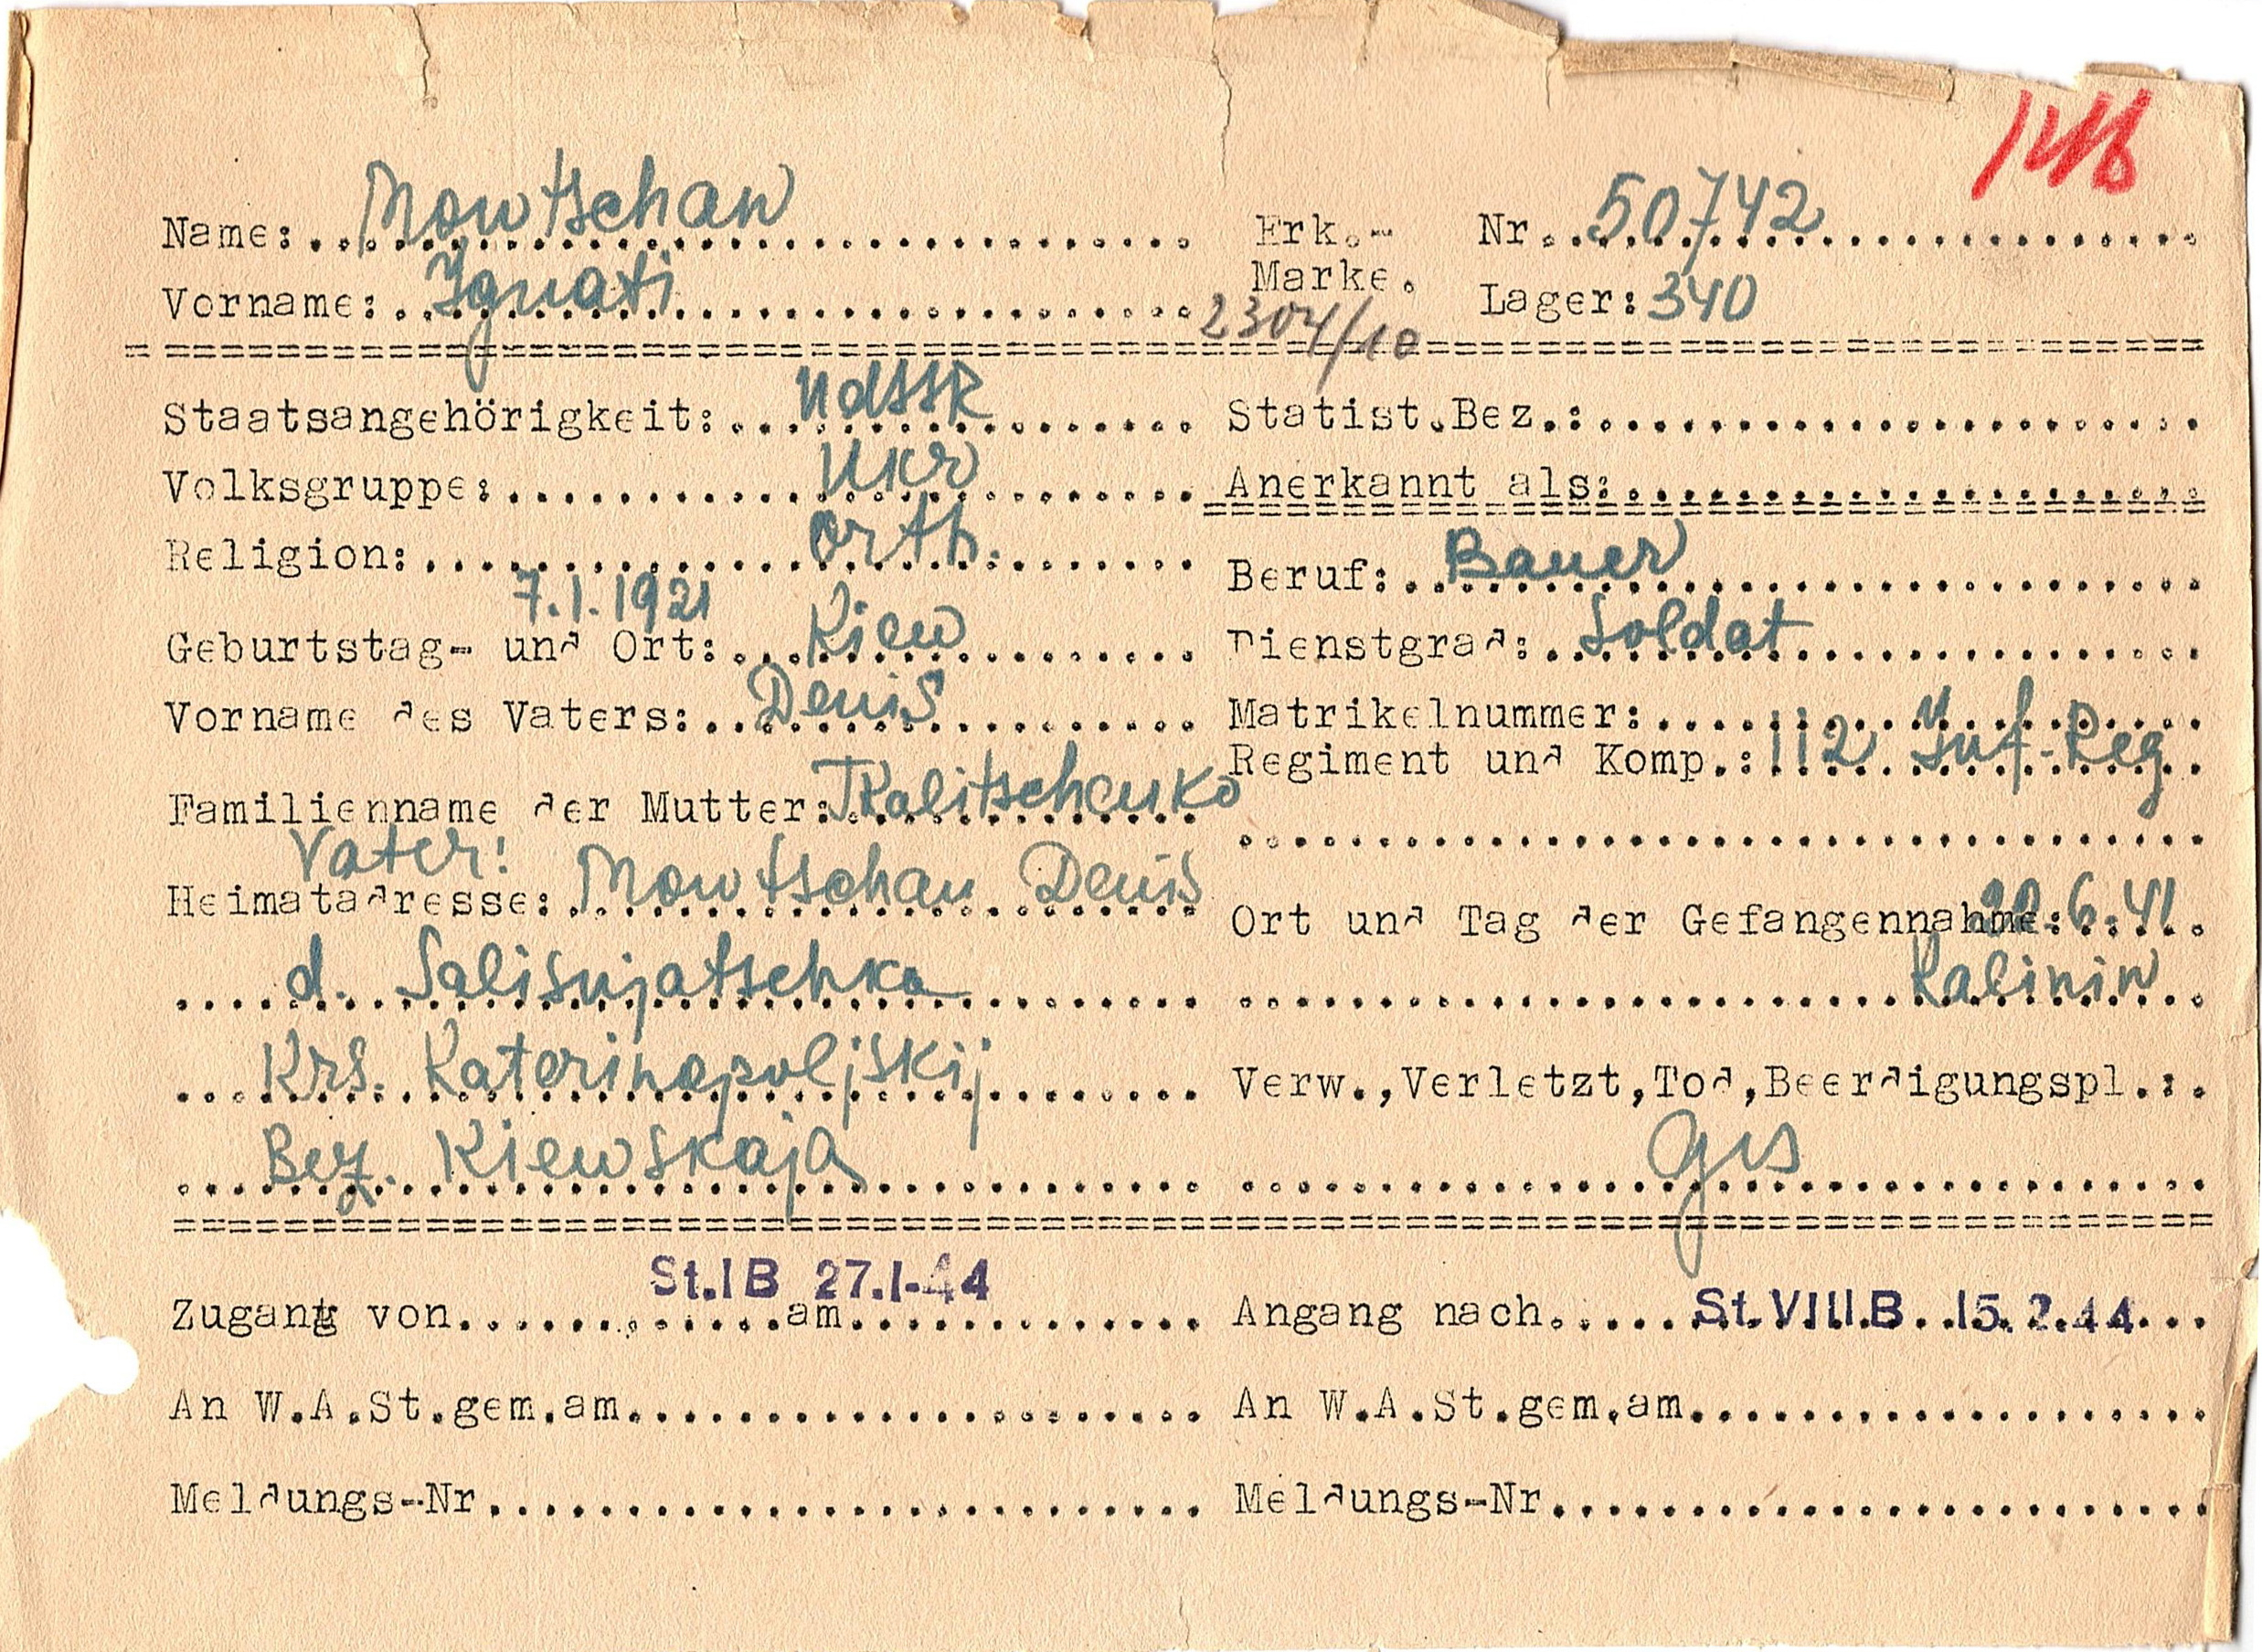 Name: Mowtschan
Vorname: Ignati
Erk.-Marke. Nr. 50742
Lager: 340
2304/10
Staatsangehörigkeit: UdSSR
Volksgruppe: Ukr
Religion: Orth.
7.1.1921
Geburtstag- und Ort: Kiew
Vorname des Vaters: Denis
Familienname der Mutter: Tkalitschenko
Vater:
Heimatadresse: Mowtschan Denis
d. Salisnjatschka
Krs. Katerinopoljskij
Bez. Kiewskaja
Statist.Bez.:
Anerkannt als:
Beruf: Bauer
Dienstgrad: Soldat
Matrikelnummer:
Regiment und Komp.: 112 Inf-Reg
Ort und Tag der Gefangennahme: .6.41
Kalinin
Verw.,Verletzt,Tod,Beerdigungspl.:
Ges
St.IB 27.1-44
Zugang von am
An W.A.St.gem.am
Meldungs-Nr
Angang nach St.VIII.B 15.2.44
An W.A.St.gem.am
Meldungs-Nr